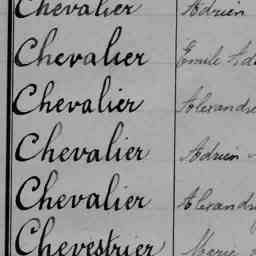 Chevalier Adrien
Chevalier Emile Ad
Chevalier Alexandre
Chevalier Adrien
Chevalier Alexandr
Chevestrier Marie